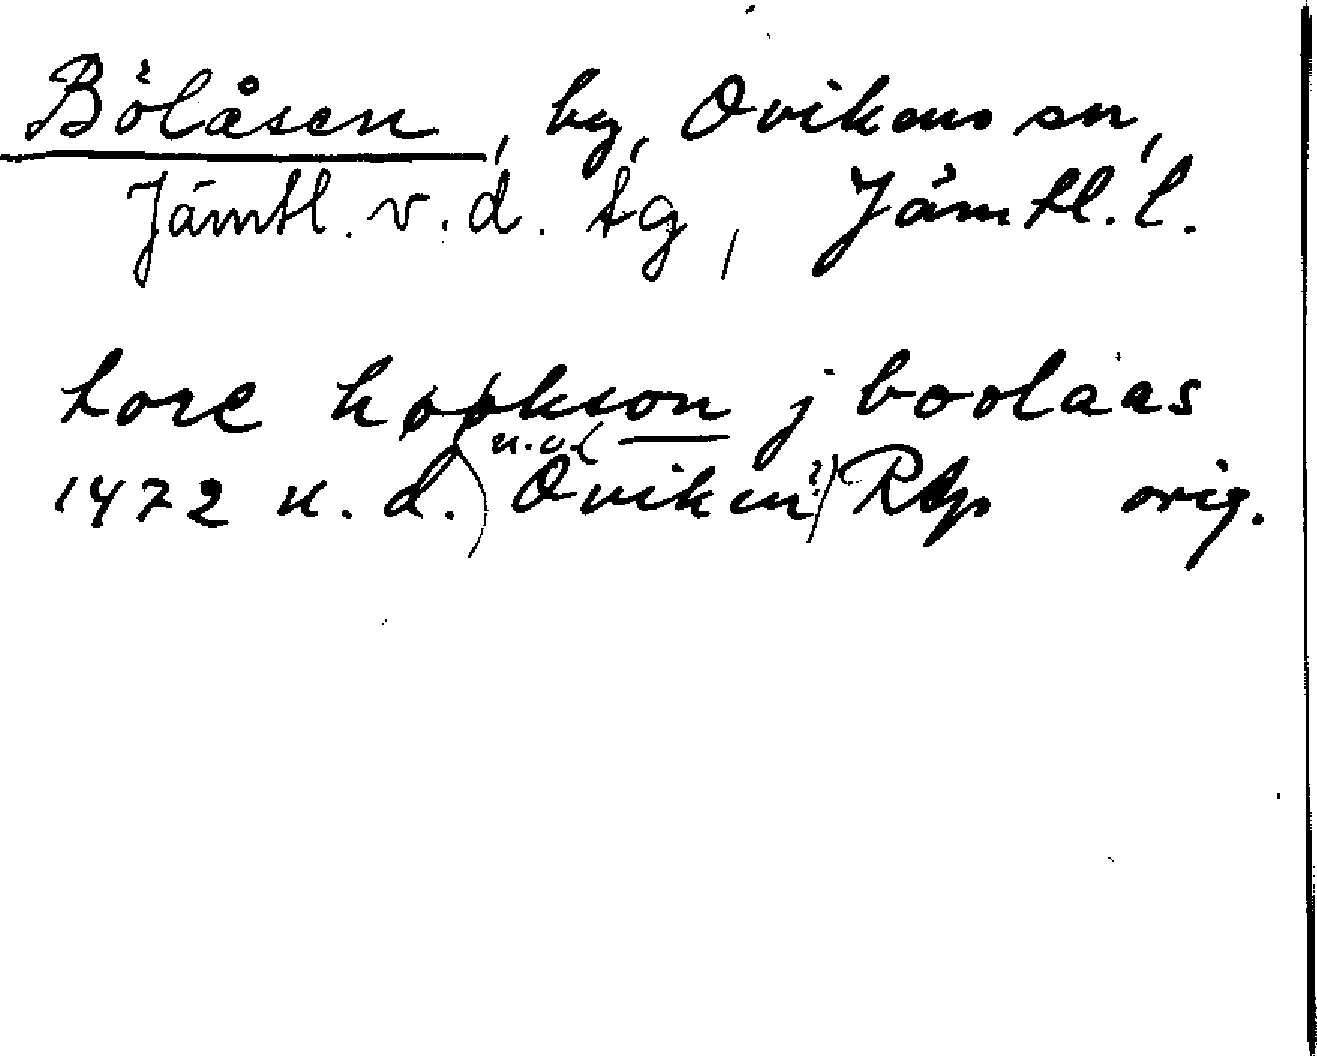 Bölåsen, by, Ovikens sn,
Jämtl. v. d. tg, Jämtl. l.
tore høøkson j boolaas
1472 u. d. (u.o.( Oviken?) RAp orig.